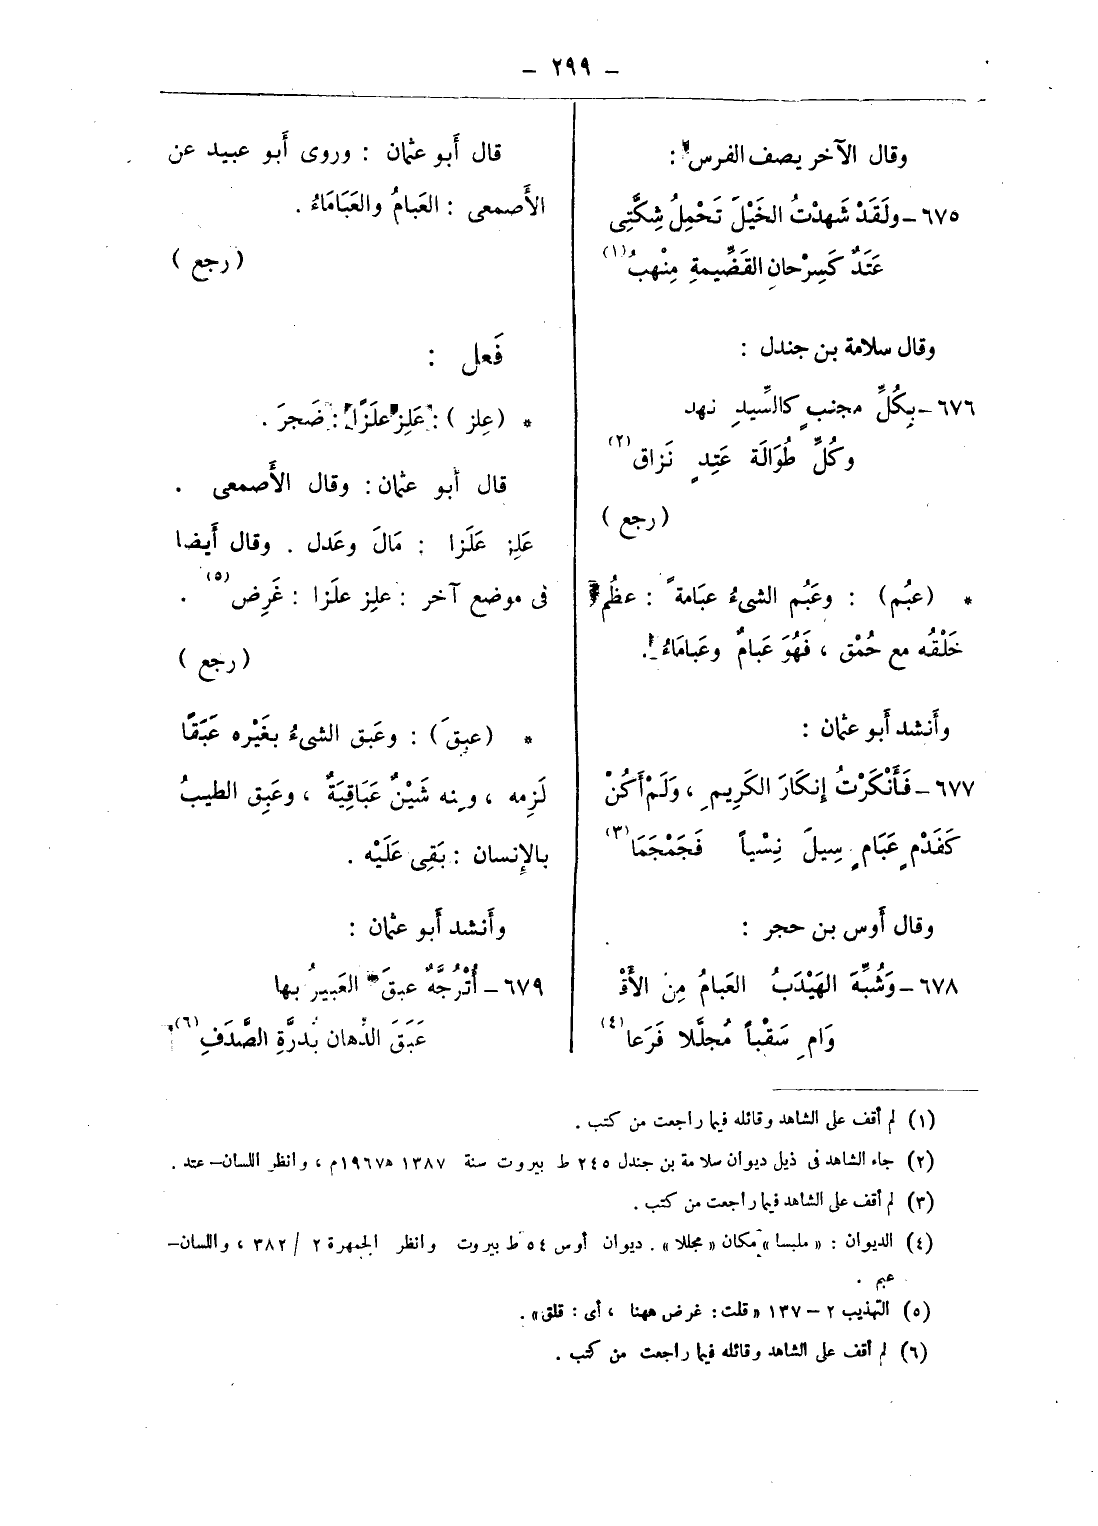 – ٢٩٩ –
وقال الآخر يصف الفرس :
٦٧٥–ولَقَدْ شَهِدْتُ الخَيْلَ تَحْمِلُ شِكَّتِى
عَتَدٌ كَسِرْحانِ القَصِيمةِ مِنْهبُ(١)
وقال سلامة بن جندل :
٦٧٦–بِكُلِّ مجنبٍ كالسِّيدِ نهد
وكُلِّ طُوَالَة عَتِدٍ نَزاق(٢)
(رجع)
* (عبُم) : وعَبُم الشىءُ عبَامةً : عظُم
خَلْقُه مع حُمْق ، فَهُوَ عَبامٌ وعَبامَاءُ .
وأَنشد أَبو عثمان :
٦٧٧–فَأَنْكَرْتُ إِنكَارَ الكَرِيمِ ، وَلَمْ أَكُنْ
كَفَدْمٍ عَبَامٍ سِيلَ نِسْياً فَجَمْجَمَا(٣)
وقال أَوس بن حجر :
٦٧٨–وَشُبِّهَ الهَيْدَبُ العَبامُ مِنَ الأَقْ
وَامِ سَقْباً مُجلَّلا فَرَعا(٤)
قال أَبو عثمان : وروى أَبو عبيد عن
الأَصمعى : العَبامُ والعَبَامَاءُ .
(رجع)
فَعِل :
* (عِلز) : عَلِز علَزًا : ضَجرَ .
قال أَبو عثمان : وقال الأَصمعى .
عَلِز عَلَزا : مَالَ وعَدل . وقال أَيضا
فى موضع آخر : علِز علَزا : غَرِض(٥) .
(رجع)
* (عبِقَ) : وعَبق الشىءُ بغَيْره عَبَقًا
لَزِمه ، ومنه شَيْنٌ عَبَاقِيَةٌ ، وعَبِق الطيبُ
بالإِنسان : بَقِى عَلَيْه .
وأَنشد أَبو عثمان :
٦٧٩–أُتْرُجَّةٌ عبقَ العَبيرُ بها
عَبَقَ الدِّهان بدُرَّةِ الصَّدَفِ(٦)
(١) لم أقف على الشاهد وقائله فيما راجعت من كتب .
(٢) جاء الشاهد فى ذيل ديوان سلامة بن جندل ٢٤٥ ط بيروت سنة ١٣٨٧ ه ١٩٦٧م ، وانظر اللسان– عتد .
(٣) لم أقف على الشاهد فيما راجعت من كتب .
(٤) الديوان : « ملبسا » مكان « مجللا » . ديوان أوس ٥٤ ط بيروت وانظر الجمهرة ٢ / ٣٨٢ ، واللسان–
عبم .
(٥) التهذيب ٢ – ١٣٧ « قلت : غرض ههنا ، أى : قلق» .
(٦) لم أقف على الشاهد وقائله فيما راجعت من كتب .